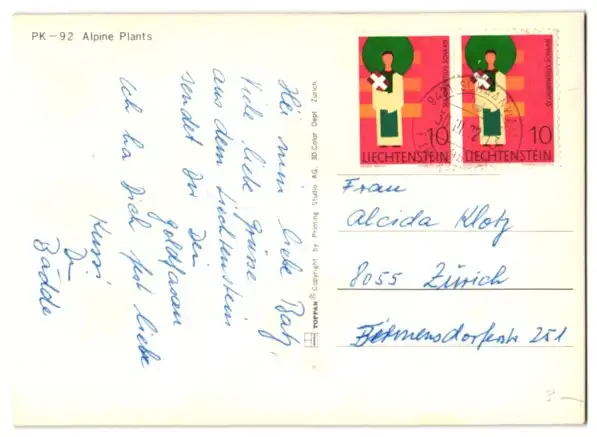 PK-92 Alpine Plants
Hei mini liebe Batz,
Viele liebe Grüsse
aus dem Liechtenstein
sendet Dir Dein
Goldfasan
Ich ha Dich fest liebe
Kussi
Di
Bädde
TOPPAN® Copyright by Printing Studio AG, 3D Color Dept. Zürich
10
LIECHTENSTEIN
10
LIECHTENSTEIN
Frau
Alcida Klotz
8055 Zürich
Birmensdorferstr. 251